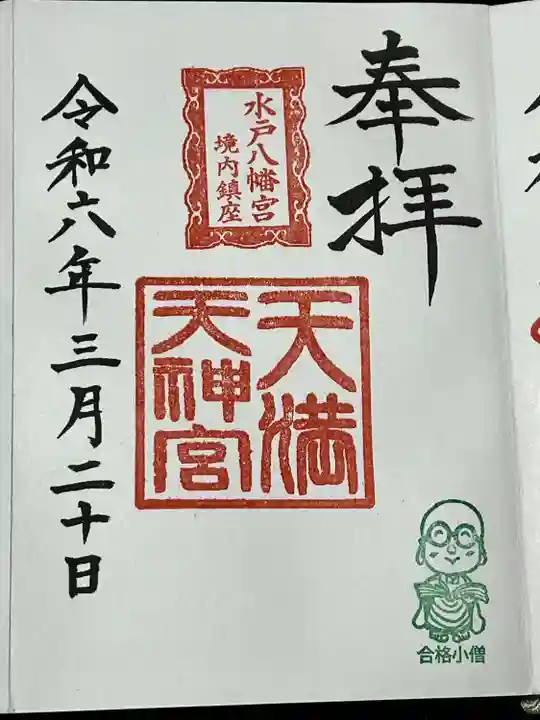 奉拝
水戸八幡宮
境内鎮座
天満
天神宮
令和六年三月二十日
合格小僧